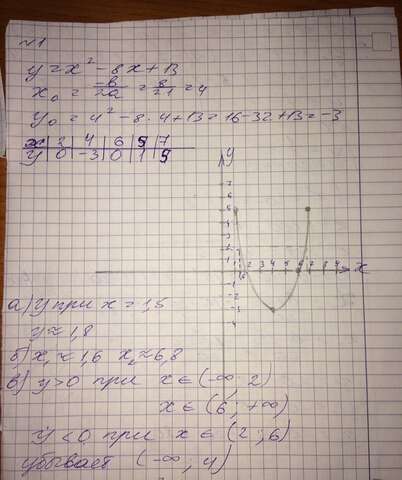 №1
y = x² - 8x + 13
x₀ = -b/2a = 8/2·1 = 4
y₀ = 4² - 8·4 + 13 = 16 - 32 + 13 = -3
x 2 4 6 5 7
y 0 -3 0 1 5
y
7
6
5
4
3
2
1
1 2 3 4 5 6 7 8 9 x
-1
-2
-3
-4
а) y при x = 1,5
y ≈ 1,8
б) x₁ ≈ 1,6 x₂ ≈ 6,8
в) y > 0 при x ∈ (-∞; 2)
x ∈ (6; +∞)
y < 0 при x ∈ (2; 6)
убывает (-∞; 4)